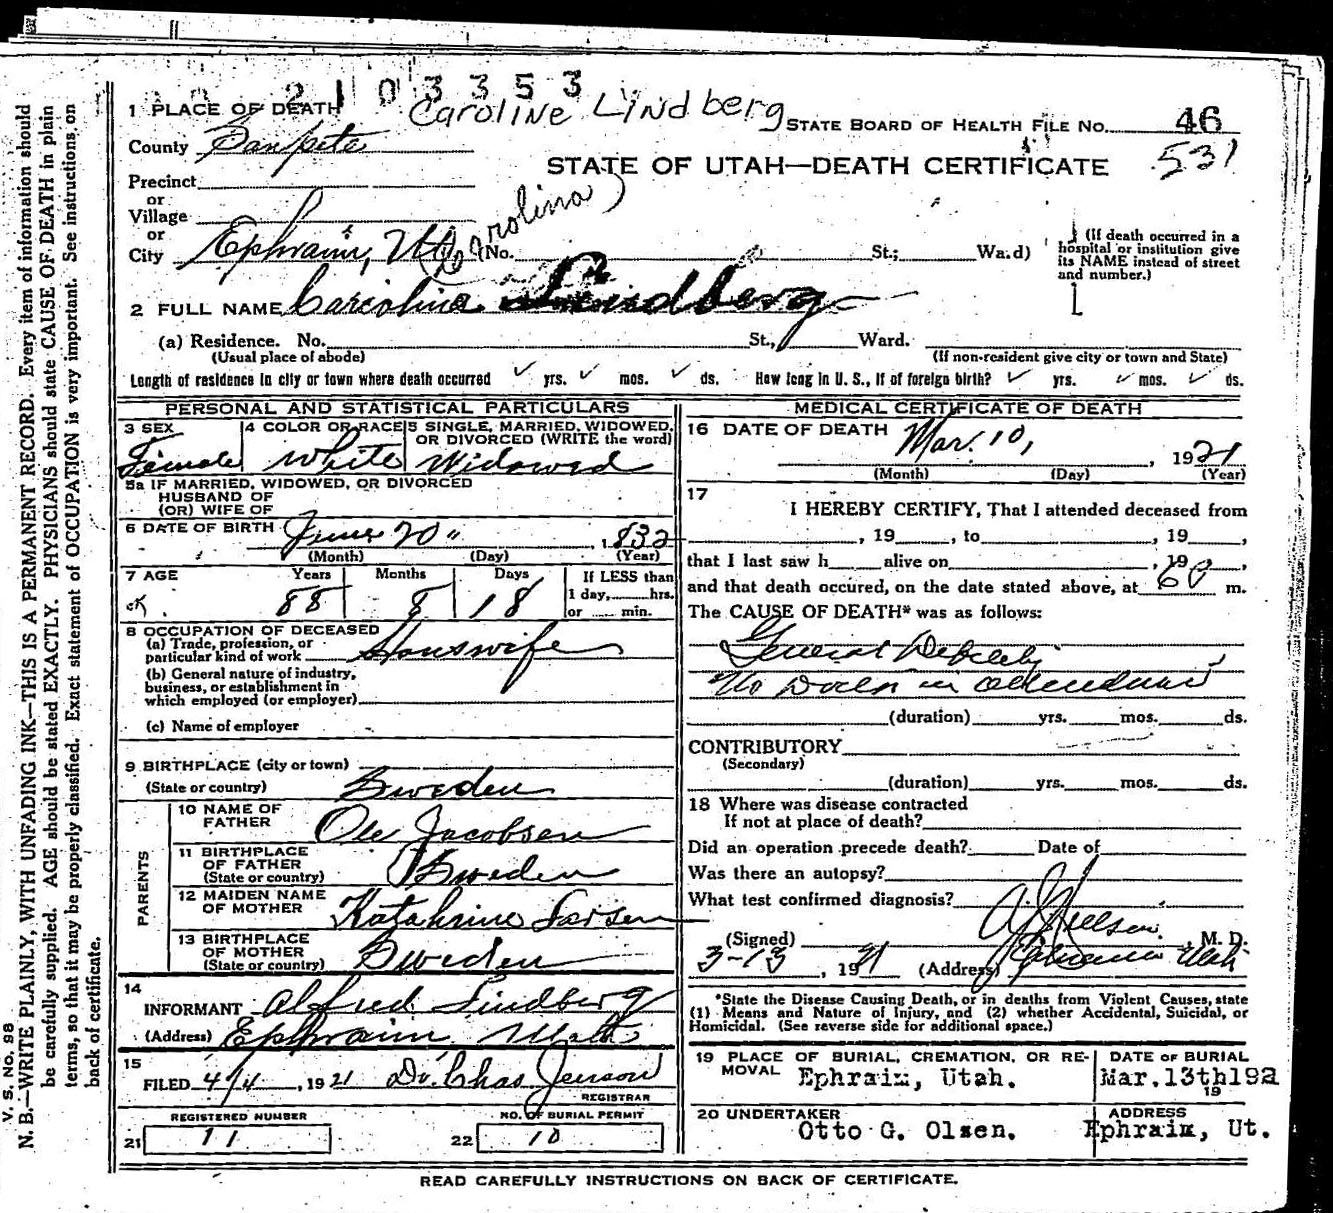 2 1 0 3 3 5 3
1 PLACE OF DEATH Caroline Lindberg STATE BOARD OF HEALTH FILE NO. 46
County Sanpete STATE OF UTAH—DEATH CERTIFICATE 531
Precinct
or
Village
or (Carolina)
City Ephraim, Ut (No. St.; Wa.d) (If death occurred in a hospital or institution give its NAME instead of street and number.)
2 FULL NAME Carcolina Lindberg
(a) Residence. No. St., Ward.
(Usual place of abode) (If non-resident give city or town and State)
Length of residence in city or town where death occurred ✓ yrs. ✓ mos. ✓ ds. How long in U. S., if of foreign birth? ✓ yrs. ✓ mos. ✓ ds.
PERSONAL AND STATISTICAL PARTICULARS
3 SEX 4 COLOR OR RACE 5 SINGLE, MARRIED, WIDOWED, OR DIVORCED (WRITE the word)
Female White Widowed
5a IF MARRIED, WIDOWED, OR DIVORCED
HUSBAND OF
(OR) WIFE OF
6 DATE OF BIRTH June 20" 1832
(Month) (Day) (Year)
7 AGE Years Months Days If LESS than
88 8 18 1 day, hrs.
or min.
8 OCCUPATION OF DECEASED
(a) Trade, profession, or
particular kind of work Houswife
(b) General nature of industry,
business, or establishment in
which employed (or employer)
(c) Name of employer
9 BIRTHPLACE (city or town)
(State or country) Sweden
PARENTS
10 NAME OF
FATHER Ole Jacobsen
11 BIRTHPLACE
OF FATHER
(State or country) Sweden
12 MAIDEN NAME
OF MOTHER Katahrine Larsen
13 BIRTHPLACE
OF MOTHER
(State or country) Sweden
14
INFORMANT Alfred Lindberg
(Address) Ephraim Utah
15
FILED 4/4, 1921 Dr. Chas Jenson
REGISTRAR
REGISTERED NUMBER NO. OF BURIAL PERMIT
21 11 22 10
MEDICAL CERTIFICATE OF DEATH
16 DATE OF DEATH Mar. 10,
, 1921
(Month) (Day) (Year)
17
I HEREBY CERTIFY, That I attended deceased from
, 19 , to , 19 ,
that I last saw h alive on , 19 ,
and that death occured, on the date stated above, at m.
The CAUSE OF DEATH* was as follows:
General Debility
No Doctor in attendance
(duration) yrs. mos. ds.
CONTRIBUTORY
(Secondary)
(duration) yrs. mos. ds.
18 Where was disease contracted
If not at place of death?
Did an operation precede death? Date of
Was there an autopsy?
What test confirmed diagnosis?
(Signed) Nielson. , M. D.
3-13, 1921 (Address) Ephraim Utah
*State the Disease Causing Death, or in deaths from Violent Causes, state
(1) Means and Nature of Injury, and (2) whether Accidental, Suicidal, or
Homicidal. (See reverse side for additional space.)
19 PLACE OF BURIAL, CREMATION, OR RE- DATE OF BURIAL
MOVAL Ephraim, Utah. Mar.13th192
19
20 UNDERTAKER ADDRESS
Otto G. Olsen. Ephraim, Ut.
READ CAREFULLY INSTRUCTIONS ON BACK OF CERTIFICATE.
V. S. No. 98
N. B.—WRITE PLAINLY, WITH UNFADING INK—THIS IS A PERMANENT RECORD. Every item of information should
be carefully supplied. AGE should be stated EXACTLY. PHYSICIANS should state CAUSE OF DEATH in plain
terms, so that it may be properly classified. Exact statement of OCCUPATION is very important. See instructions on
back of certificate.